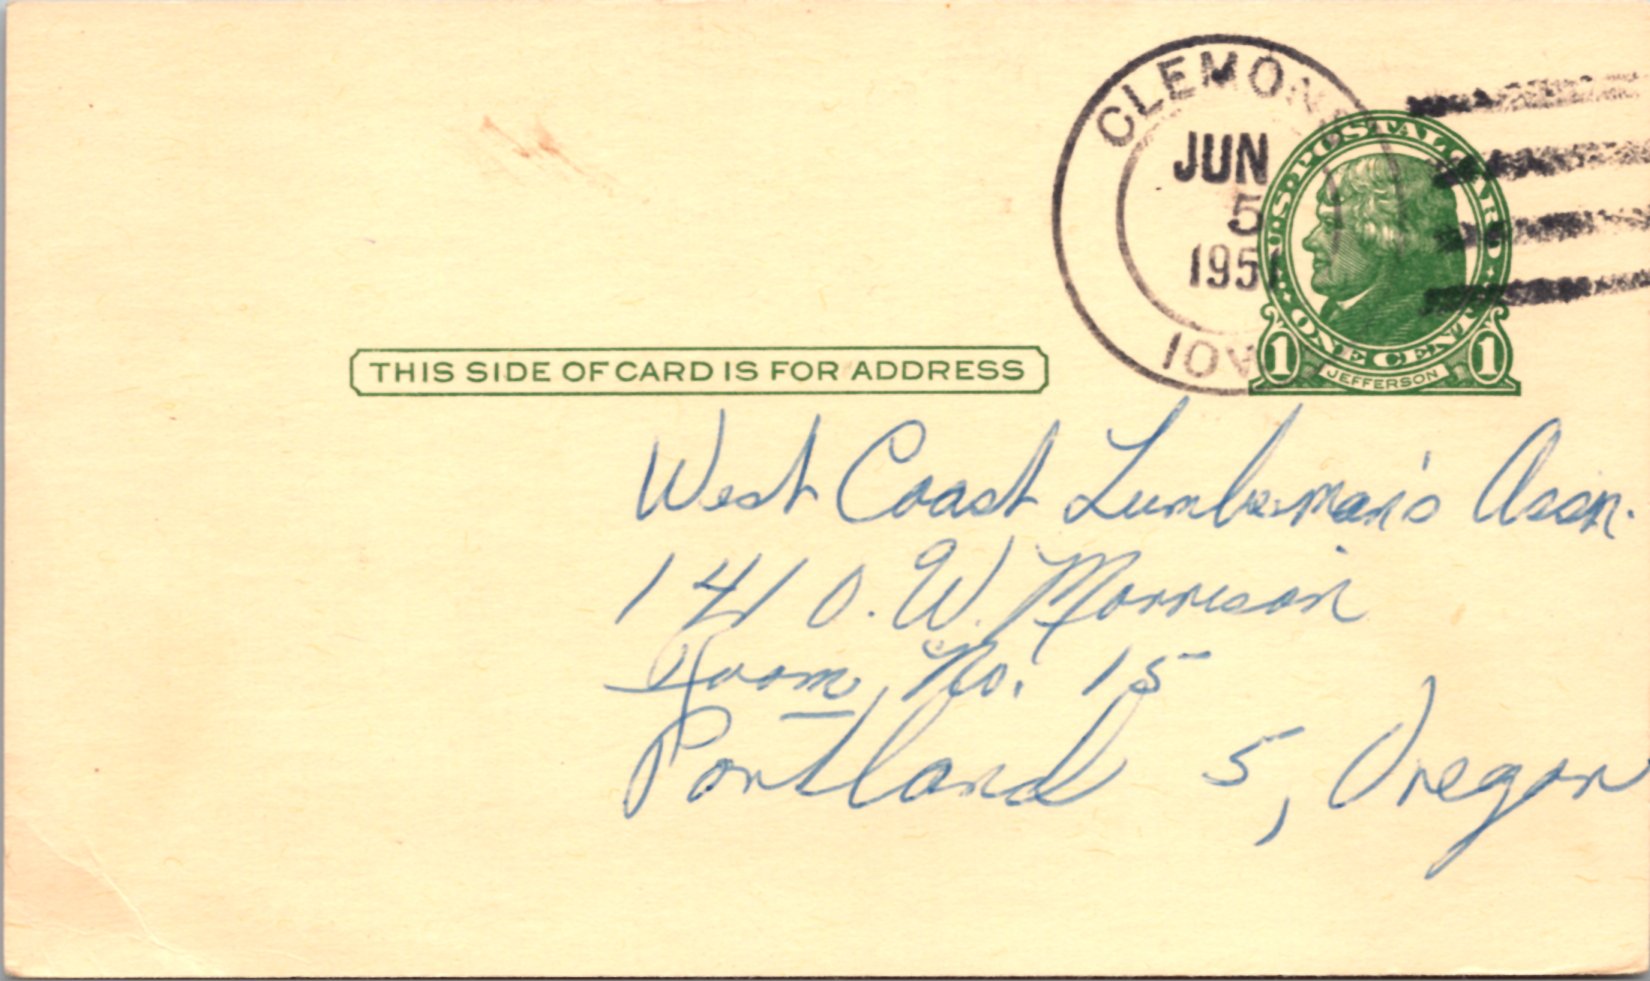 CLEMONS
JUN
5
1951
IOWA
U.S. POSTAL CARD
ONE CENT
1 JEFFERSON 1
THIS SIDE OF CARD IS FOR ADDRESS
West Coast Lumberman's Assn.
1410. W. Morrison
Room, No. 15
Portland 5, Oregon